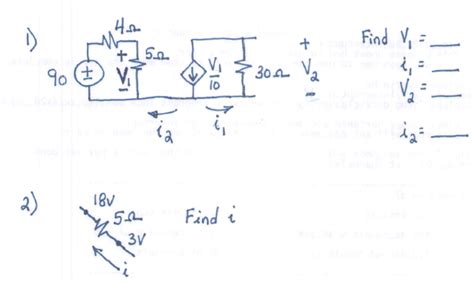 1) 4Ω
90 ± + V₁ - 5Ω V₁/10 30Ω + V₂ -
i₂ i₁
Find V₁ = __
i₁ = __
V₂ = __
i₂ = __
2) 18V
5Ω
3V
i
Find i